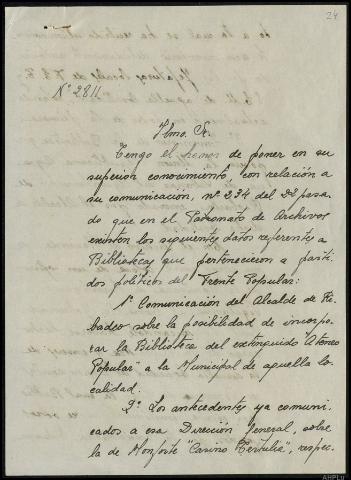 24
Nº 2811
Ilmo. Sr.
Tengo el honor de poner en su
superior conocimiento, con relación a
su comunicación, nº 234 del pasa-
do que en el Patronato de Archivos
existen los siguientes datos referentes a
Bibliotecas que pertenecieron a parti-
dos políticos del Frente Popular:
1º Comunicación del Alcalde de Ri-
badeo sobre la posibilidad de incorpo-
rar la Biblioteca del extinguido "Ateneo
Popular" a la Municipal de aquella lo-
calidad.
2º Los antecedentes ya comuni-
cados a esa Dirección General, sobre
la de Monforte "Casino Tertulia", respec-
AHPLu